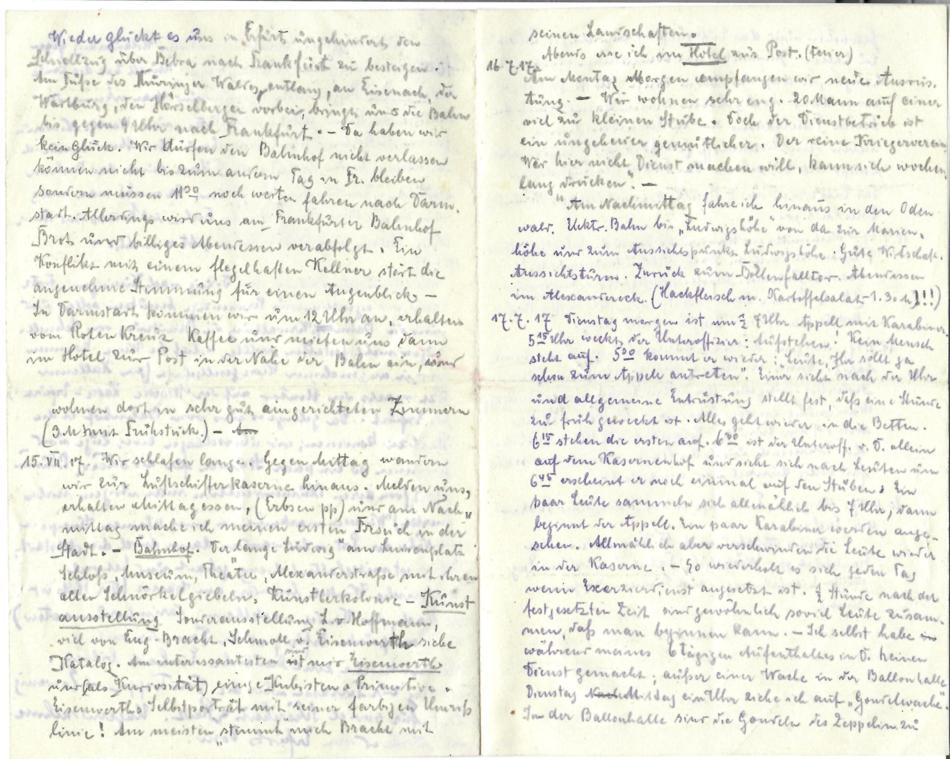 Wieder glückt es uns in Erfurt ungehindert den
Schnellzug über Bebra nach Frankfurt zu besteigen.
Am Fuße des Thüringer Waldes entlang, an Eisenach, der
Wartburg, den Hörselbergen vorbei, bringt uns die Bahn
bis gegen 9 Uhr nach Frankfurt. – Da haben wir
kein Glück. Wir dürfen den Bahnhof nicht verlassen
können nicht bis zum andern Tag in Fr. bleiben
sondern müssen 11 00 noch weiter fahren nach Darm-
stadt. Allerdings wird uns am Frankfurter Bahnhof
Brot und billiges Abendessen verabfolgt. Ein
Konflikt mit einem flegelhaften Kellner stört die
angenehme Stimmung für einen Augenblick –
In Darmstadt kommen wir um 12 Uhr an, erhalten
vom Roten Kreuz Kaffee und mieten uns dann
im Hotel zur Post in der Nähe der Bahn ein, und
wohnen dort in sehr gut eingerichteten Zimmern
(3 M mit Frühstück.) –
15. VII. 17. Wir schlafen lange. Gegen Mittag wandern
wir zur Luftschifferkaserne hinaus. Melden uns,
erhalten Mittagessen, (Erbsen pp) und am Nach-
mittag mache ich meinen ersten Besuch in der
Stadt. – Bahnhof. Der lange Ludwig am Luisenplatz
Schloß, Museum, Theater, Alexanderstraße mit ihren
alten Schnörkelgiebeln, Künstlerkolonie – Kunst
ausstellung Sonderausstellung L. v. Hoffmann,
viel von Eug. Bracht, Schmoll v. Eisenwerth siehe
Katalog. Am interessantesten ist mir Eisenwerth
und (als Kuriosität) einige Kubisten u Primitive.
Eisenwerths Selbstporträt mit seiner farbigen Umriß
linie! Am meisten stimmt mich Bracht mit
seinen Landschaften.
Abends wie ich im Hotel zur Post. (teuer)
16. 7. 17. Am Montag Morgen empfangen wir neue Ausrüs-
tung. – Wir wohnen sehr eng. 20 Mann auf einer
viel zu kleinen Stube. Doch der Dienstbetrieb ist
ein ungeheuer gemütlicher. Der reine Kriegerverein
Wer hier nicht Dienst machen will, kann sich wochen
lang drücken. –
Am Nachmittag fahre ich hinaus in den Oden
wald. Elektr. Bahn bis „Ludwigshöhe" von da zur Marien-
höhe und zum Aussichtspunkt Ludwigshöhe. Gute Wirtschaft.
Aussichtsturm. Zurück zum Abendessen
im Alexandereck. (Hackfleisch m. Kartoffelsalat 1.30 M)!!)
17. 7. 17 Dienstag morgen ist um 7 Uhr Appell mit Karabiner
5 15 Uhr weckt der Unteroffizier: Aufstehen! Kein Mensch
steht auf. 5 30 kommt er wieder: „Leute, Ihr sollt ja
schon zum Appell antreten". Einer sieht nach der Uhr
und allgemeine Entrüstung stellt fest, daß eine Stunde
zu früh geweckt ist. Alles geht wieder in die Betten.
6 15 stehen die ersten auf. 6 30 ist der Unteroff. v. D. allein
auf dem Kasernenhof und sieht sich nach Leuten um
6 45 erscheint er noch einmal auf den Stuben. Ein
paar Leute sammeln sich allmählich bis 7 Uhr, dann
beginnt der Appell. Ein paar Karabiner werden ange-
sehen. Allmählich aber verschwinden die Leute wieder
in der Kaserne. – So wiederholt es sich jeden Tag
wenn Exerzierdienst angesetzt ist. ½ Stunde nach der
festgesetzten Zeit sind gewöhnlich soviel Leute zusam-
men, daß man beginnen kann. – Ich selbst habe
während meines 6 tägigen Aufenthaltes in D. keinen
Dienst gemacht; außer einer Wache in der Ballonhalle
Dienstag Mittag ein Uhr ziehe ich auf „Gondelwache".
In der Ballonhalle sind die Gondeln des Zeppelin zu